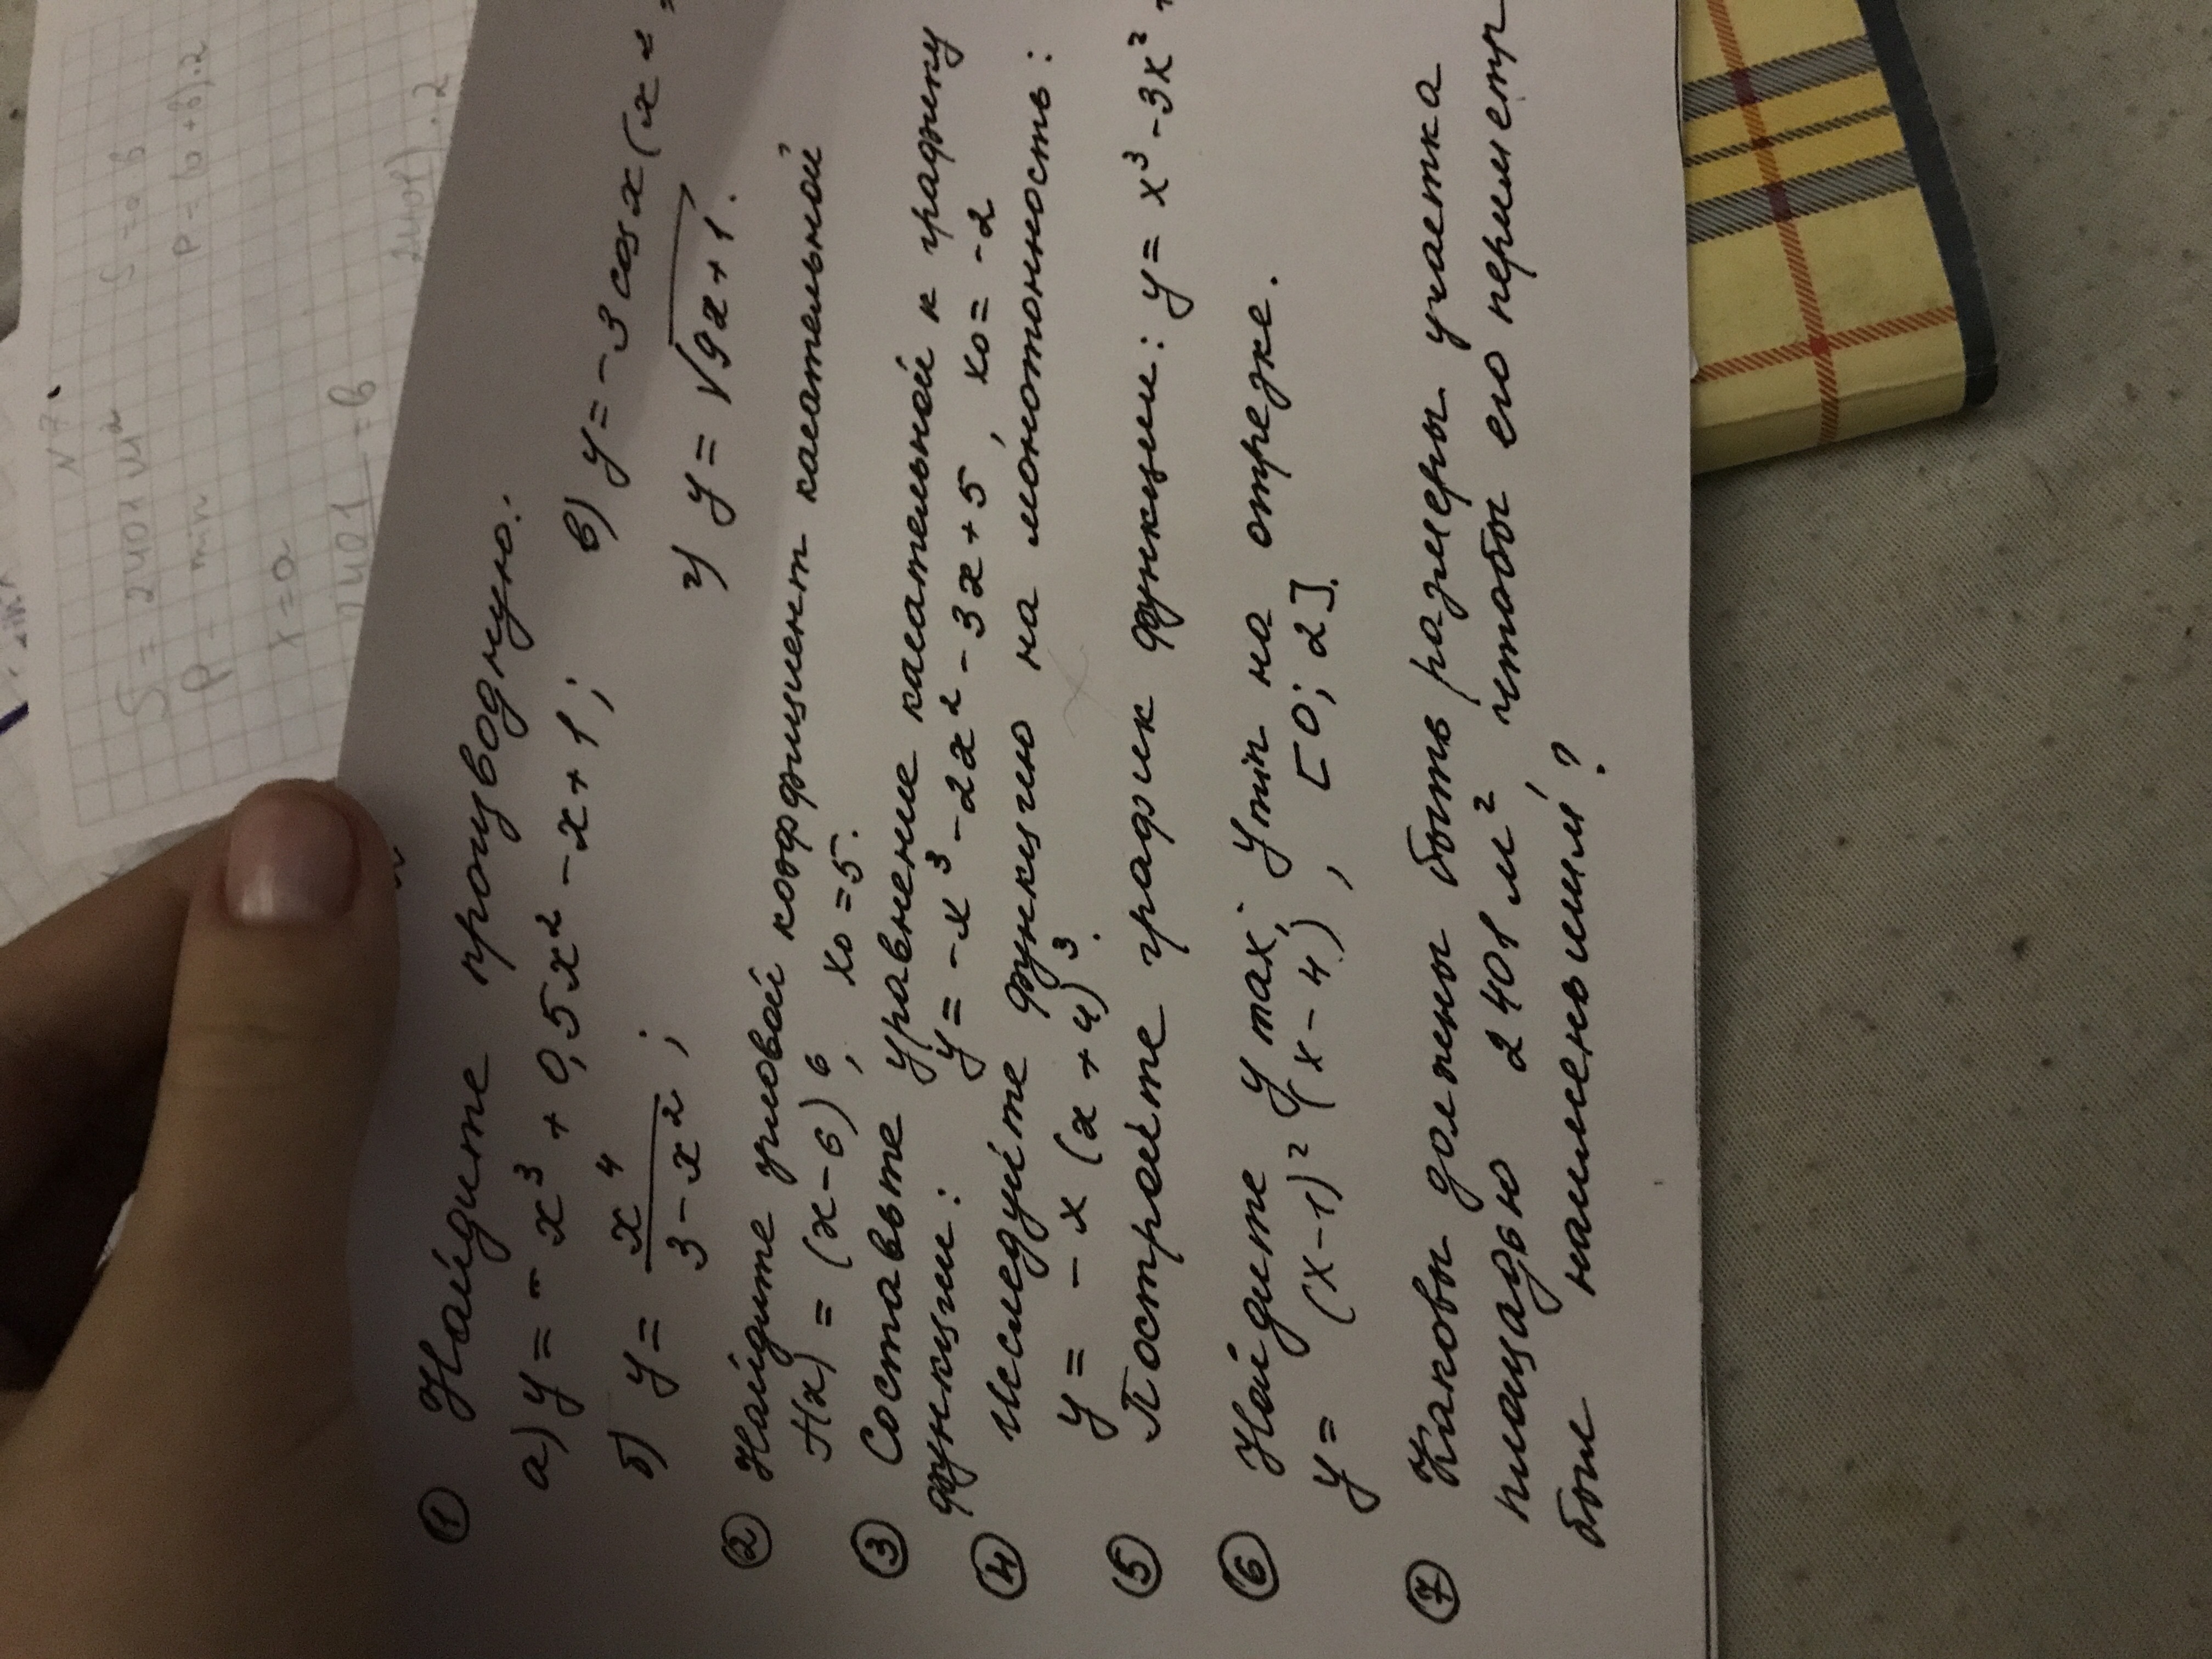 N 7.
S = 2401 м² S = a·b
P - min P = (a + b)·2
x = a
2401 = b
2401) · 2
① Найдите производную:
а) y = - x³ + 0,5x² - x + 1 ; в) y = -3 cos x (x²
б) y = x⁴ / (3 - x²) ; г) y = √9x+1.
② Найдите угловой коэффициент касательной
f(x) = (x-6)⁶, x₀ = 5.
③ Составьте уравнение касательной к графику
функции: y = -x³ - 2x² - 3x + 5, x₀ = -2
④ Исследуйте функцию на монотонность:
y = - x (x + 4)³.
⑤ Постройте график функции: y = x³ - 3x² +
⑥ Найдите y max; y min на отрезке.
y = (x-1)² (x-4), [0; 2].
⑦ Каковы должны быть размеры участка
площадью 2401 м², чтобы его периметр
был наименьшим?